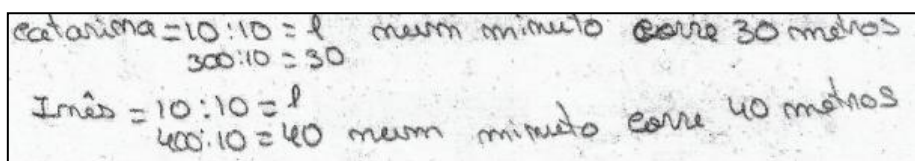 Catarina = 10:10 = 1 num minuto corre 30 metros
300:10 = 30
Inês = 10:10 = 1
400:10 = 40 num minuto corre 40 metros